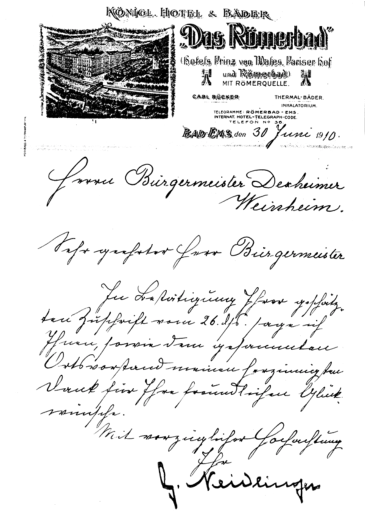 KÖNIGL. HOTEL & BÄDER
„Das Römerbad"
(Hotels Prinz von Wales, Pariser Hof
und Römerbad)
MIT RÖMERQUELLE.
CARL RÜCKER
THERMAL-BÄDER.
INHALATORIUM.
TELEGRAMME: RÖMERBAD-EMS.
INTERNAT. HOTEL-TELEGRAPH-CODE.
TELEFON Nº 36
BAD EMS, den 30 Juni 1910.
Herrn Bürgermeister Dexheimer
Weinsheim.
Sehr geehrter Herr Bürgermeister
In Bestätigung Ihrer geschätz-
ten Zuschrift vom 26. ds. sage ich
Ihnen, sowie dem gesammten
Ortsvorstand meinen herzinnigsten
Dank für Ihre freundlichen Glück-
wünsche.
Mit vorzüglicher Hochachtung
Ihr
G. Neidlinger